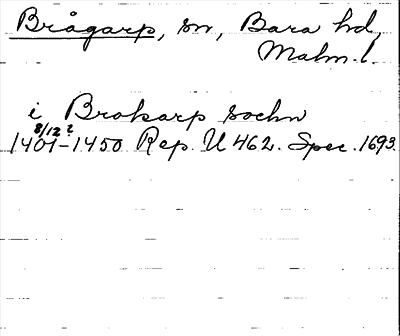 Brågarp, sn, Bara hd,
Malm. l.
i Brokarp sochn
8/12 ?
1401-1450 Rep. U 462. Spec. 1693.